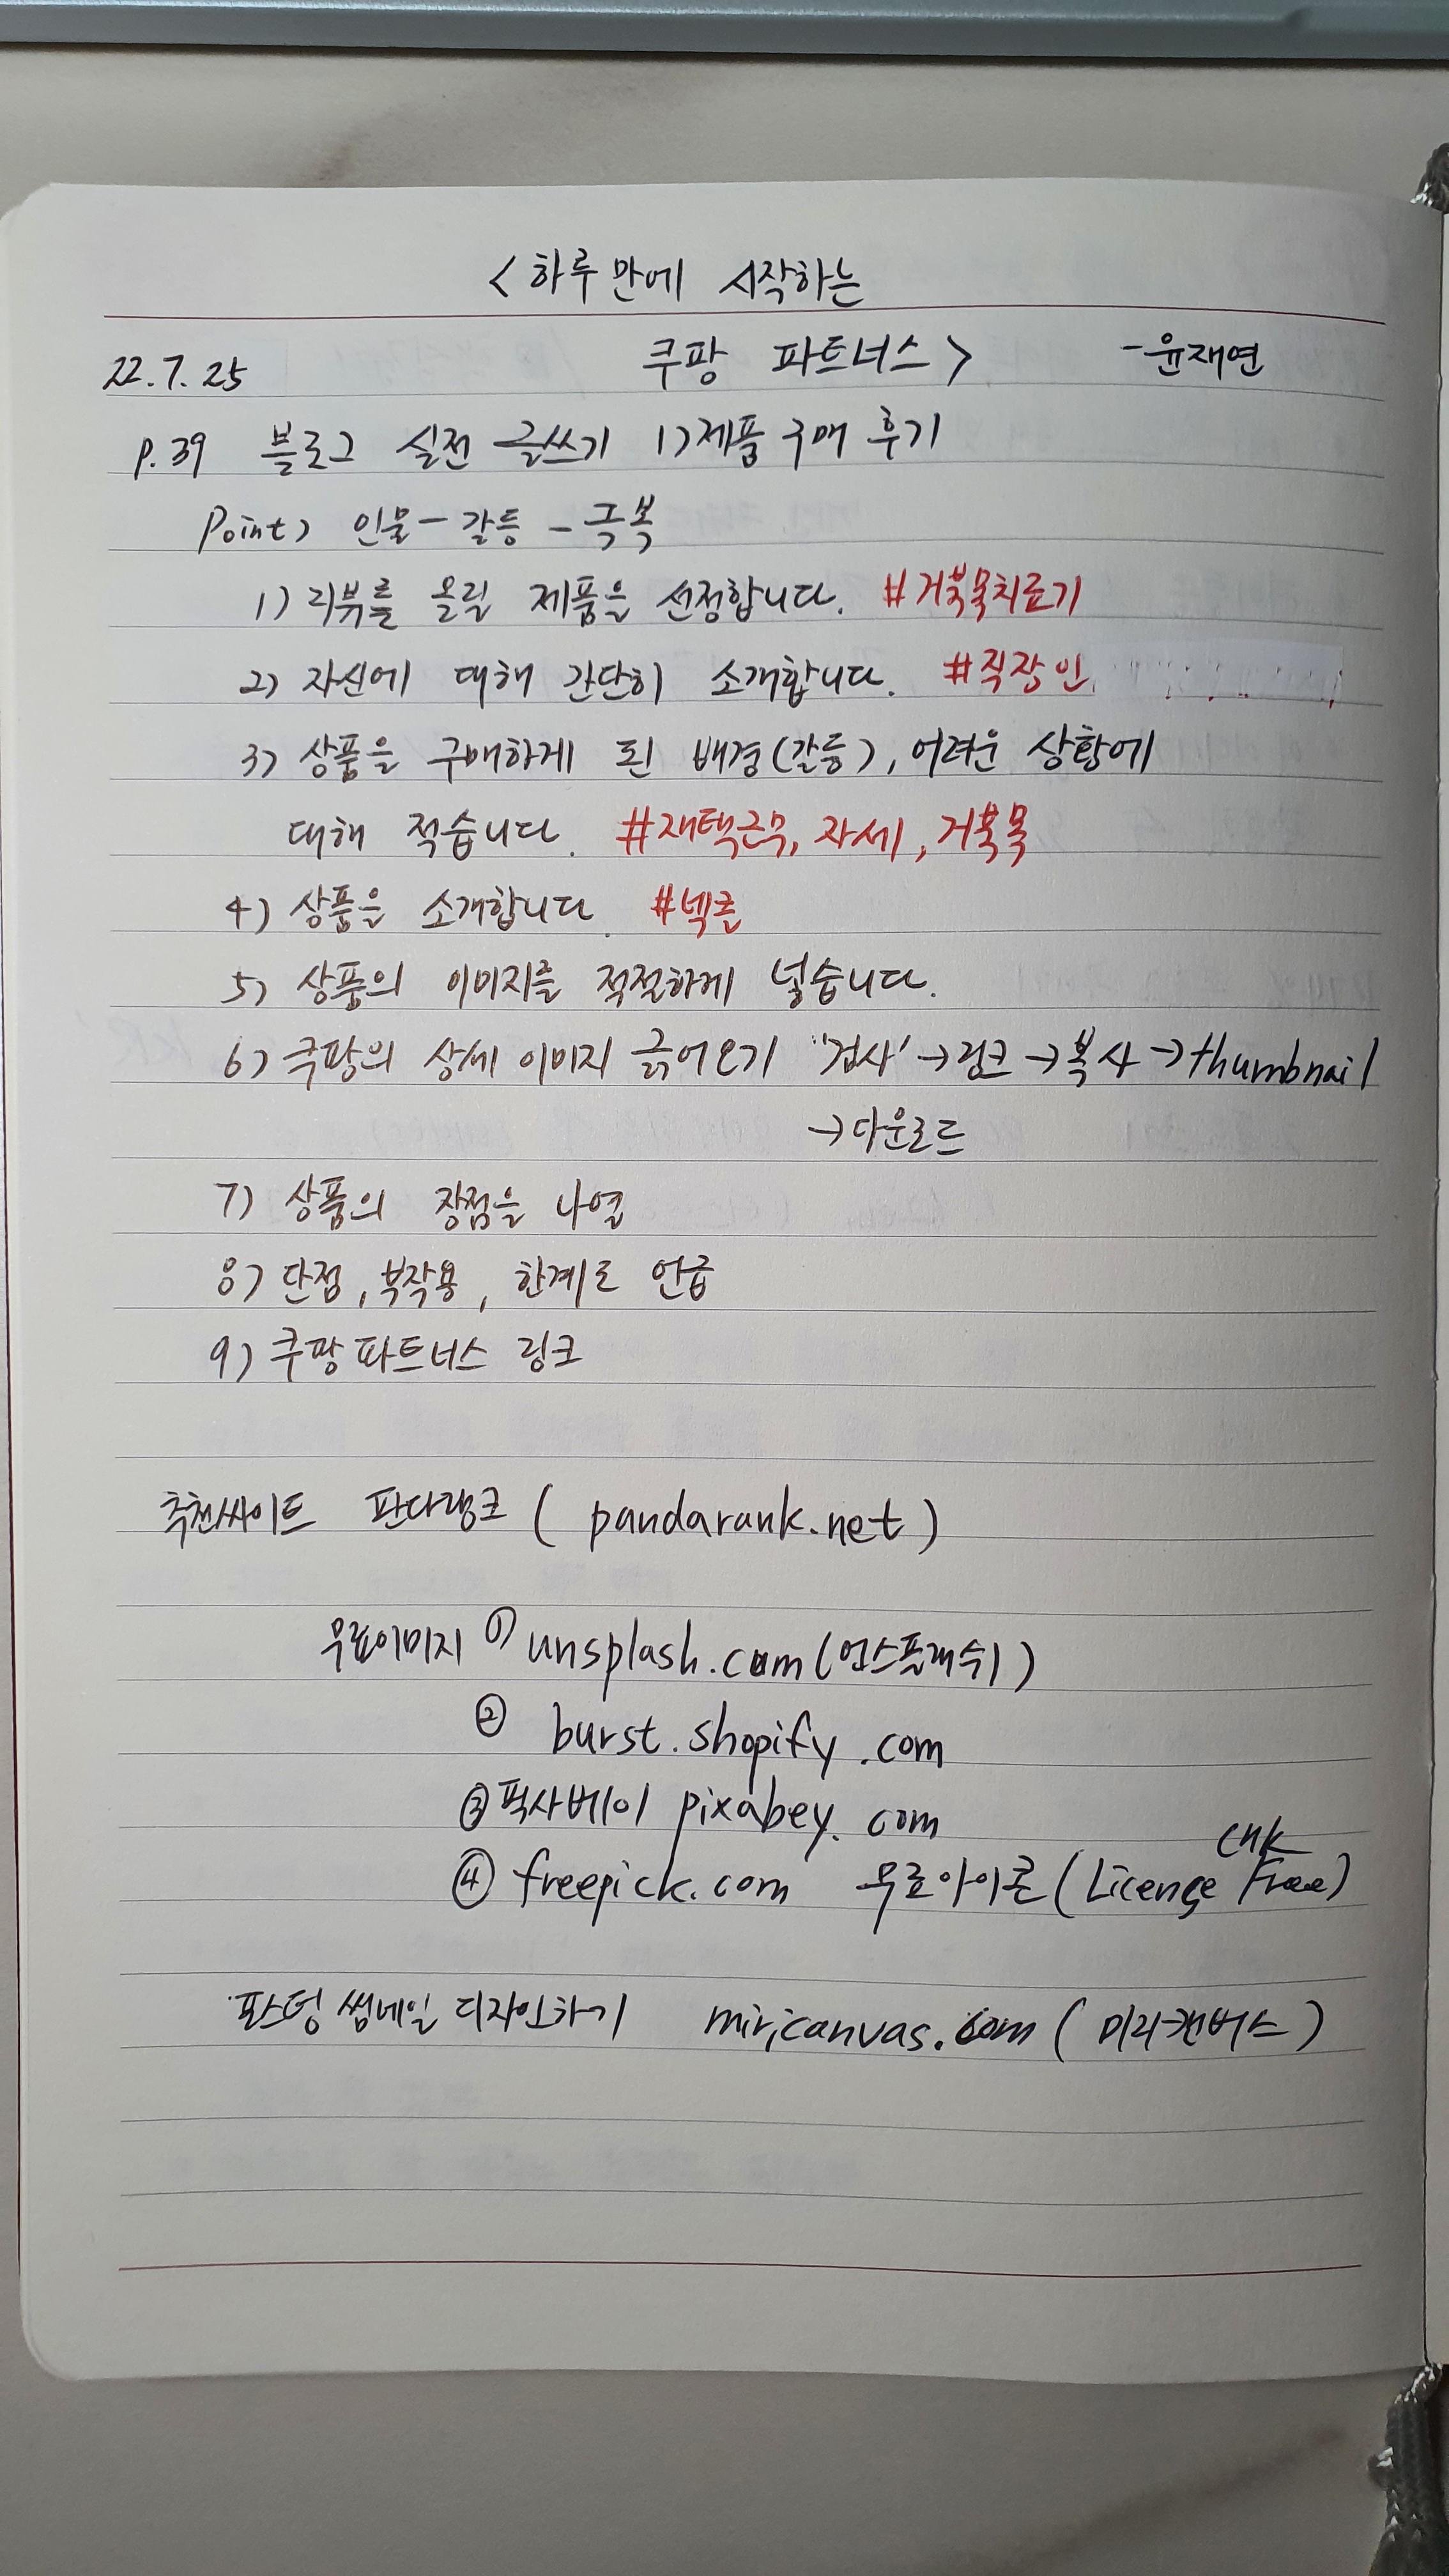 <하루만에 시작하는
22.7.25 쿠팡 파트너스> -윤재연
P.39 블로그 실전 글쓰기 1)제품 구매 후기
Point) 인물-갈등-극복
1) 리뷰를 올릴 제품을 선정합니다. #거북목치료기
2) 자신에 대해 간단히 소개합니다. #직장인
3) 상품을 구매하게 된 배경(갈등), 어려운 상황에
대해 적습니다. #재택근무, 자세, 거북목
4) 상품을 소개합니다. #넥클
5) 상품의 이미지를 적절하게 넣습니다.
6) 쿠팡의 상세 이미지 긁어오기 "검사'→링크→복사→thumbnail
→다운로드
7) 상품의 장점을 나열
8) 단점, 부작용, 한계도 언급
9) 쿠팡파트너스 링크
추천싸이트 판다랭크 (pandarank.net)
무료이미지 ① unsplash.com (언스플래쉬)
② burst.shopify.com
③ 픽사베이 pixabey.com
chk
④ freepick.com 무료아이콘 (License Free)
포스팅 썸네일 디자인하기 miricanvas.com (미리캔버스)